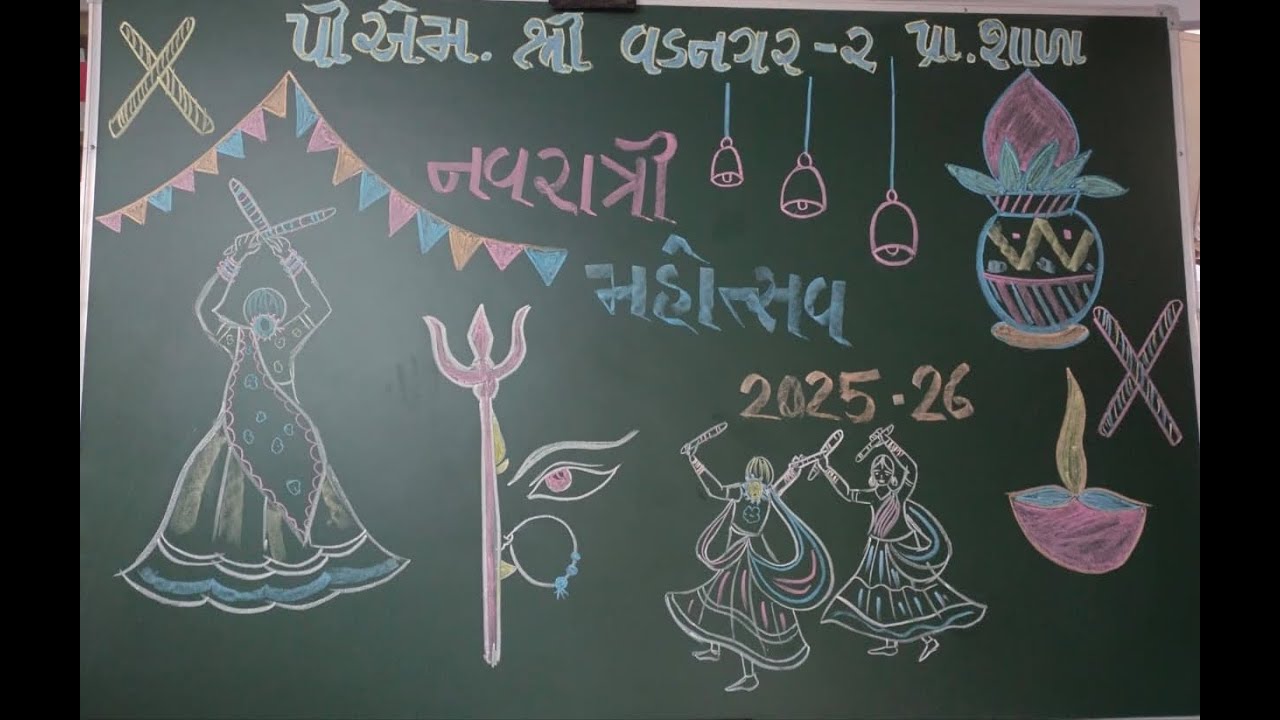 પીએમ. શ્રી વડનગર-૨ પ્રા. શાળા
નવરાત્રી
મહોત્સવ
2025-26